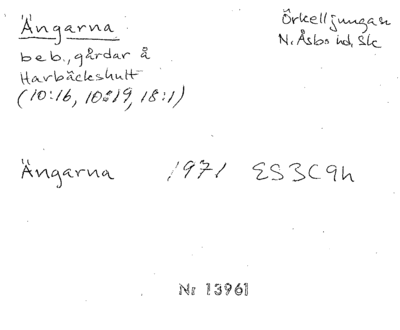 Ängarna
Örkelljunga sn
N. Åsbo hd, Sk
beb., gårdar å
Harbäckshult
(10:16, 10:19, 18:1)
Ängarna 1971 ES3C9h
Nr 13961